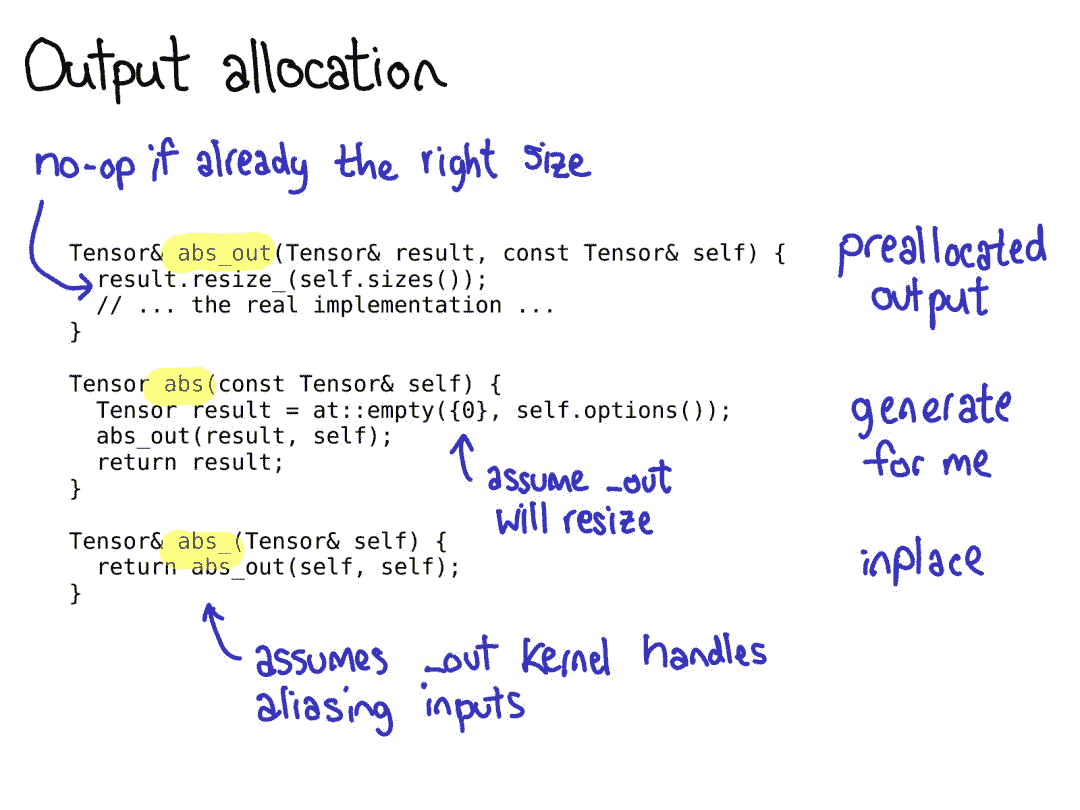 Output allocation
no-op if already the right size
Tensor& abs_out(Tensor& result, const Tensor& self) {
  result.resize_(self.sizes());
  // ... the real implementation ...
}
preallocated
output
Tensor abs(const Tensor& self) {
  Tensor result = at::empty({0}, self.options());
  abs_out(result, self);
  return result;
}
generate
for me
assume _out
will resize
Tensor& abs_(Tensor& self) {
  return abs_out(self, self);
}
inplace
assumes _out kernel handles
aliasing inputs